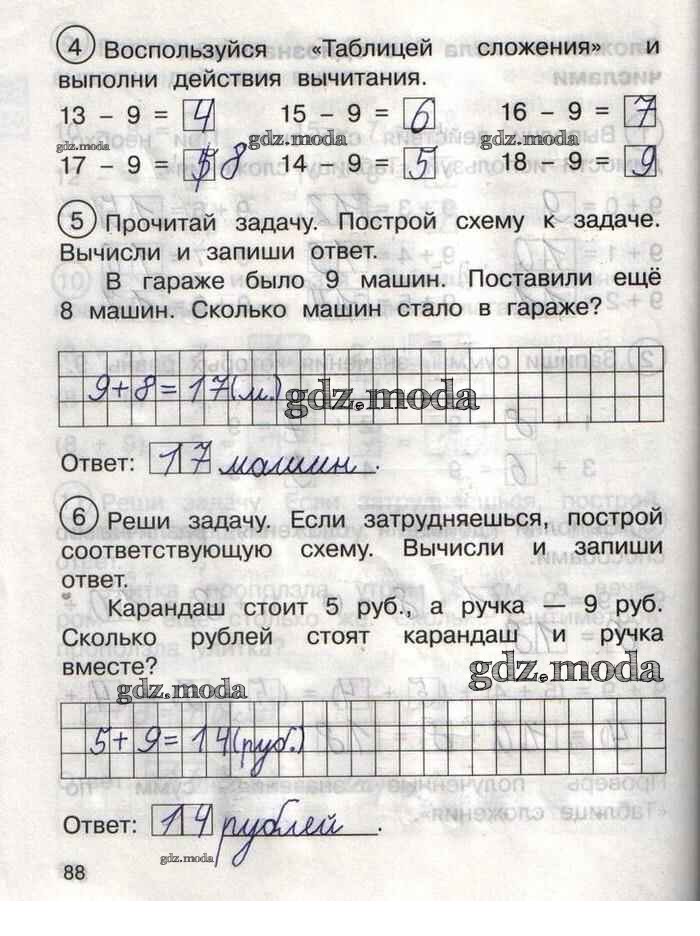 4 Воспользуйся «Таблицей сложения» и
выполни действия вычитания.
13 – 9 = 4 15 – 9 = 6 16 – 9 = 7
gdz.moda gdz.moda
17 – 9 = 8 14 – 9 = 5 18 – 9 = 9
5 Прочитай задачу. Построй схему к задаче.
Вычисли и запиши ответ.
В гараже было 9 машин. Поставили ещё
8 машин. Сколько машин стало в гараже?
9+8=17(м.) gdz.moda
Ответ: 17 машин.
6 Реши задачу. Если затрудняешься, построй
соответствующую схему. Вычисли и запиши
ответ.
Карандаш стоит 5 руб., а ручка — 9 руб.
Сколько рублей стоят карандаш и ручка
вместе?
gdz.moda gdz.moda
5+9=14(руб.)
Ответ: 14 рублей.
gdz.moda
88